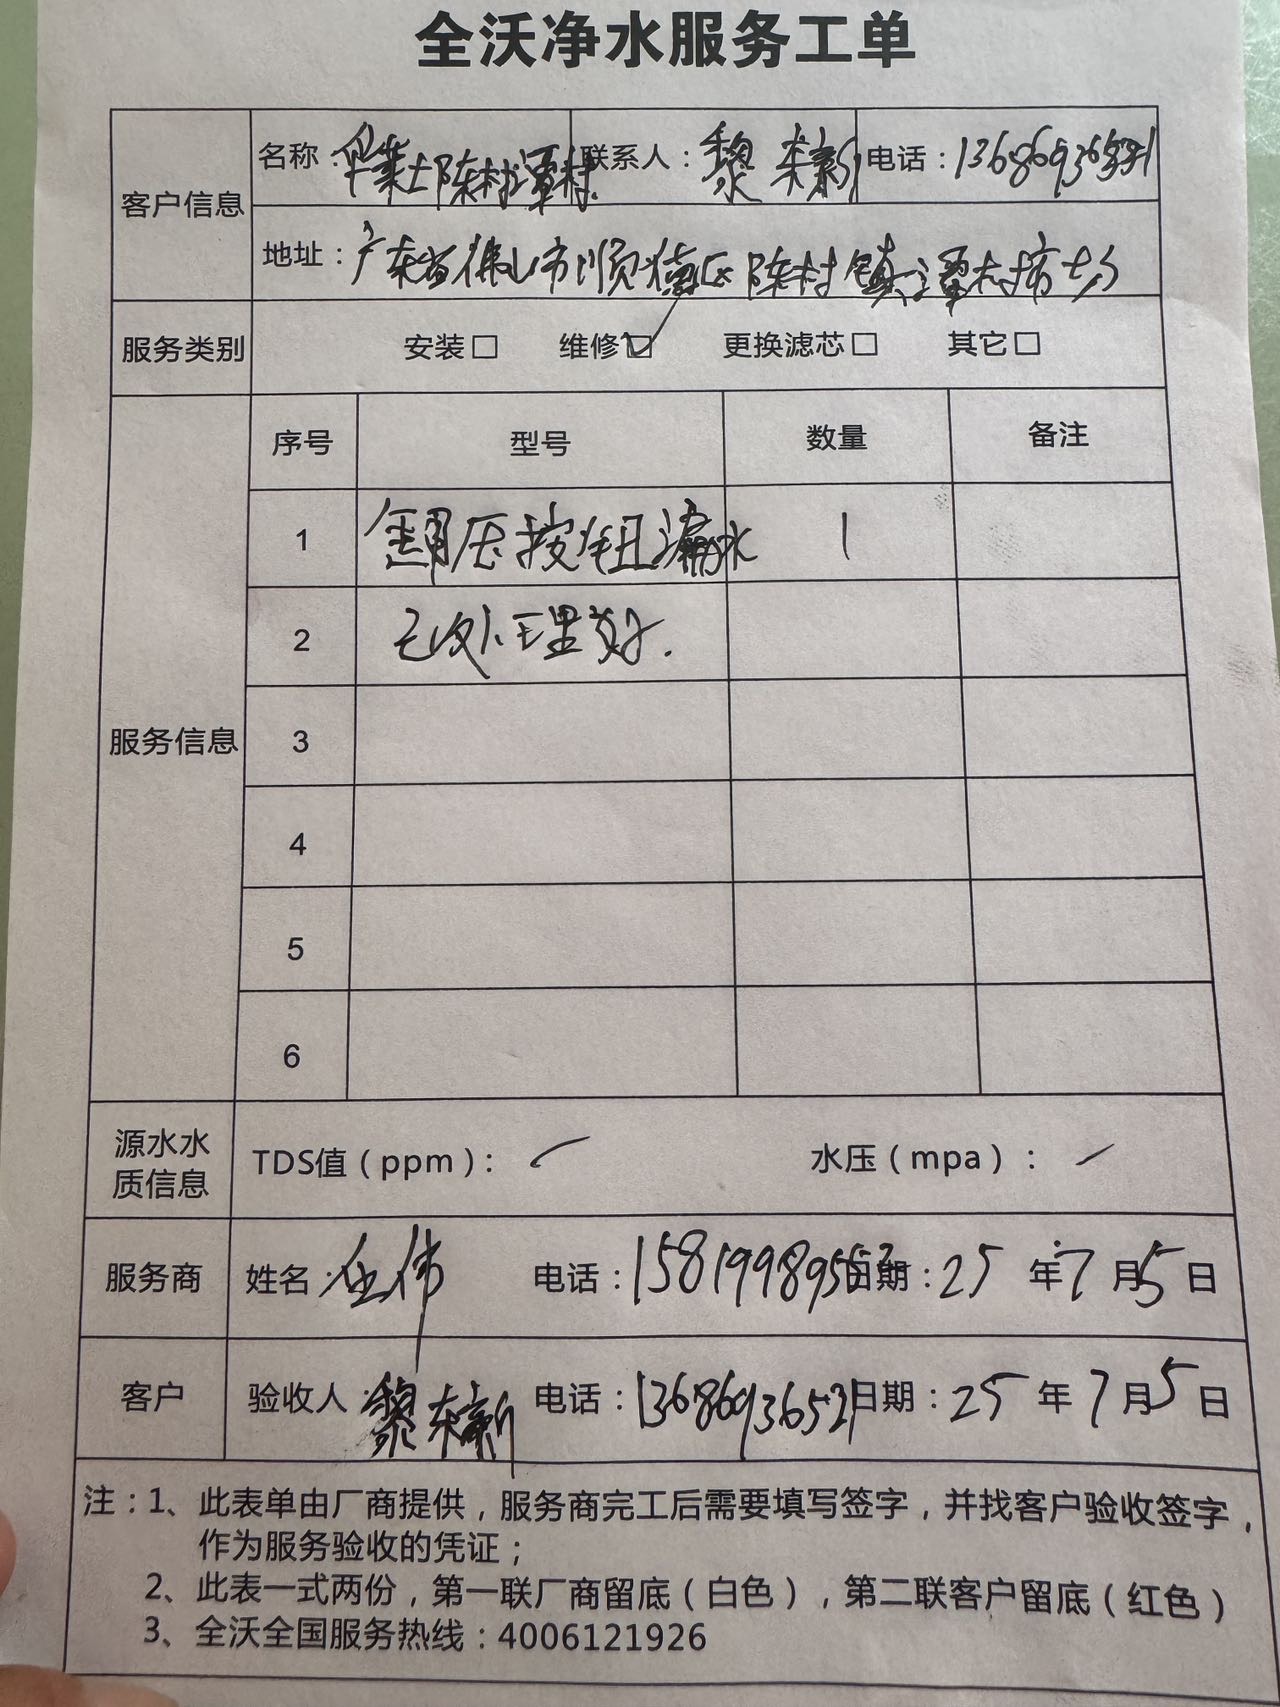 全沃净水服务工单
客户信息
名称：华莱士陈村潭村
联系人：黎东新
电话：13686936521
地址：广东省佛山市顺德区陈村镇潭村市场
服务类别
安装□ 维修☑ 更换滤芯□ 其它□
服务信息
序号 型号 数量 备注
1 压按钮漏水 1
2 已处理好.
3
4
5
6
源水水
质信息
TDS值（ppm）： 水压（mpa）：
服务商
姓名：伟 电话： 日期：25年7月5日
客户
验收人：黎东新 电话：13686936521 日期：25年7月5日
注：1、此表单由厂商提供，服务商完工后需要填写签字，并找客户验收签字，
作为服务验收的凭证；
2、此表一式两份，第一联厂商留底（白色），第二联客户留底（红色）
3、全沃全国服务热线：4006121926